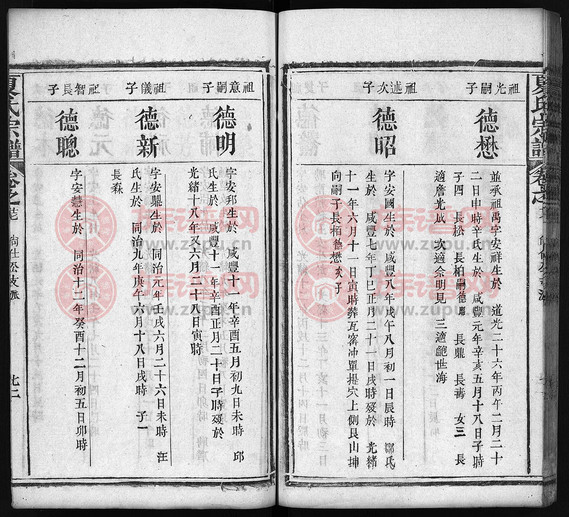 夏氏宗譜
祖光嗣子
德懋
並承祖禹字安祥生於 道光二十六年丙午二月二十
二日申時辛氏生於 咸豐元年辛亥五月十八日子時
子四 長松 長柏嗣德昭 長鼎 長壽 女三 長
適詹光成 次適余明見 三適龍世海
祖述次子
德昭
字安國生於 咸豐八年戊午八月初一日辰時 鄒氏
生於 咸豐七年丁巳正月二十一日戌時歿於 光緒
十一年六月十一日寅時葬瓦窰冲單提穴上側艮山坤
向嗣子長柏德懋次子
祖意嗣子
德明
字安邦生於 咸豐十一年辛酉五月初九日未時 邱
氏生於 咸豐十一年辛酉正月二十日子時歿於
光緒十八年又六月二十八日寅時
祖儀子
德新
字安鼎生於 同治元年壬戌六月二十六日未時 汪
氏生於 同治九年庚午六月十八日戌時 子一
長森
祖智長子
德聰
字安慧生於 同治十二年癸酉十二月初五日卯時
夏氏宗譜
卷之
尚仕公支派
七二